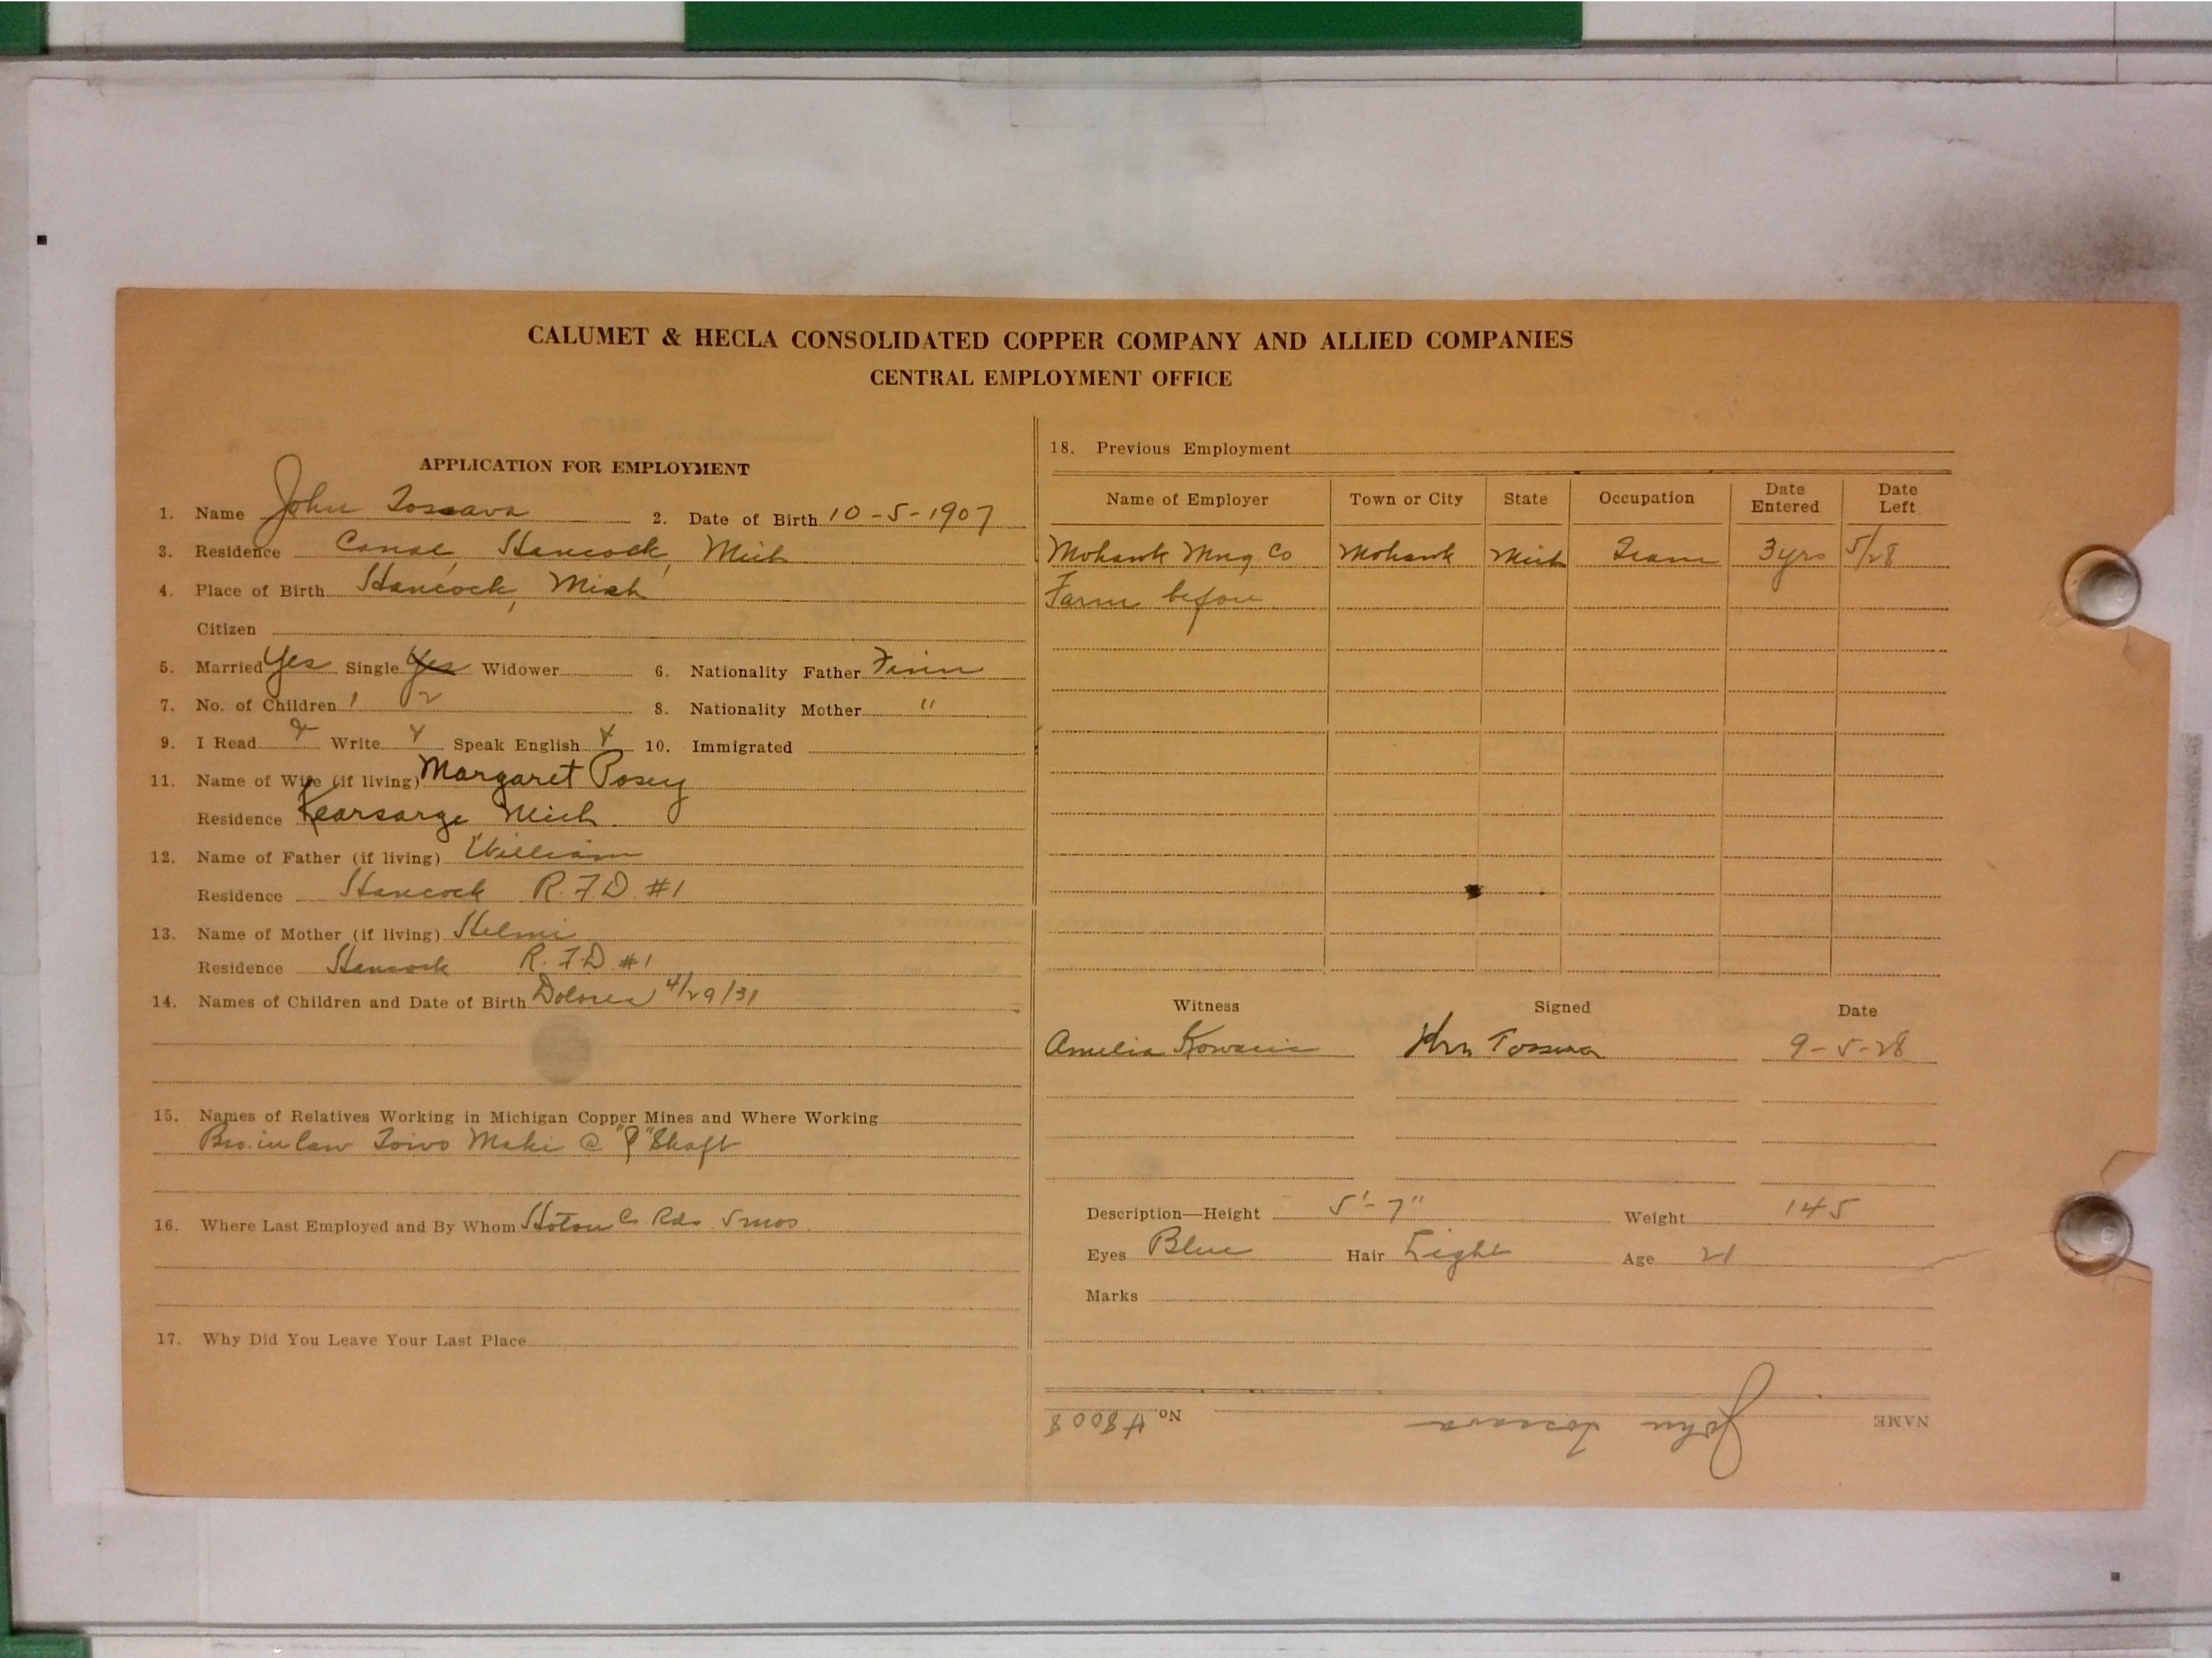 CALUMET & HECLA CONSOLIDATED COPPER COMPANY AND ALLIED COMPANIES
CENTRAL EMPLOYMENT OFFICE
APPLICATION FOR EMPLOYMENT
1. Name John Tossava 2. Date of Birth 10-5-1907
3. Residence Canal, Hancock, Mich
4. Place of Birth Hancock, Mich
Citizen
5. Married Yes Single Yes Widower 6. Nationality Father Finn
7. No. of Children 1 2 8. Nationality Mother "
9. I Read Y Write Y Speak English Y 10. Immigrated
11. Name of Wife (if living) Margaret Posey
Residence Kearsarge Mich.
12. Name of Father (if living) William
Residence Hancock R.F.D. #1
13. Name of Mother (if living) Helmi
Residence Hancock R.F.D. #1
14. Names of Children and Date of Birth Dolores 4/29/31
15. Names of Relatives Working in Michigan Copper Mines and Where Working
Bro. in law Toivo Maki @ Shaft
16. Where Last Employed and By Whom Hoton Co Rds. 5 mos.
17. Why Did You Leave Your Last Place
18. Previous Employment
Name of Employer Town or City State Occupation Date Entered Date Left
Mohawk Mng Co Mohawk Mich Tram 3 yrs 5/28
Farm before
Witness Signed Date
Amelia John Tossava 9-5-28
Description—Height 5'-7" Weight 145
Eyes Blue Hair Light Age 21
Marks
NAME John Tossava No. 48008